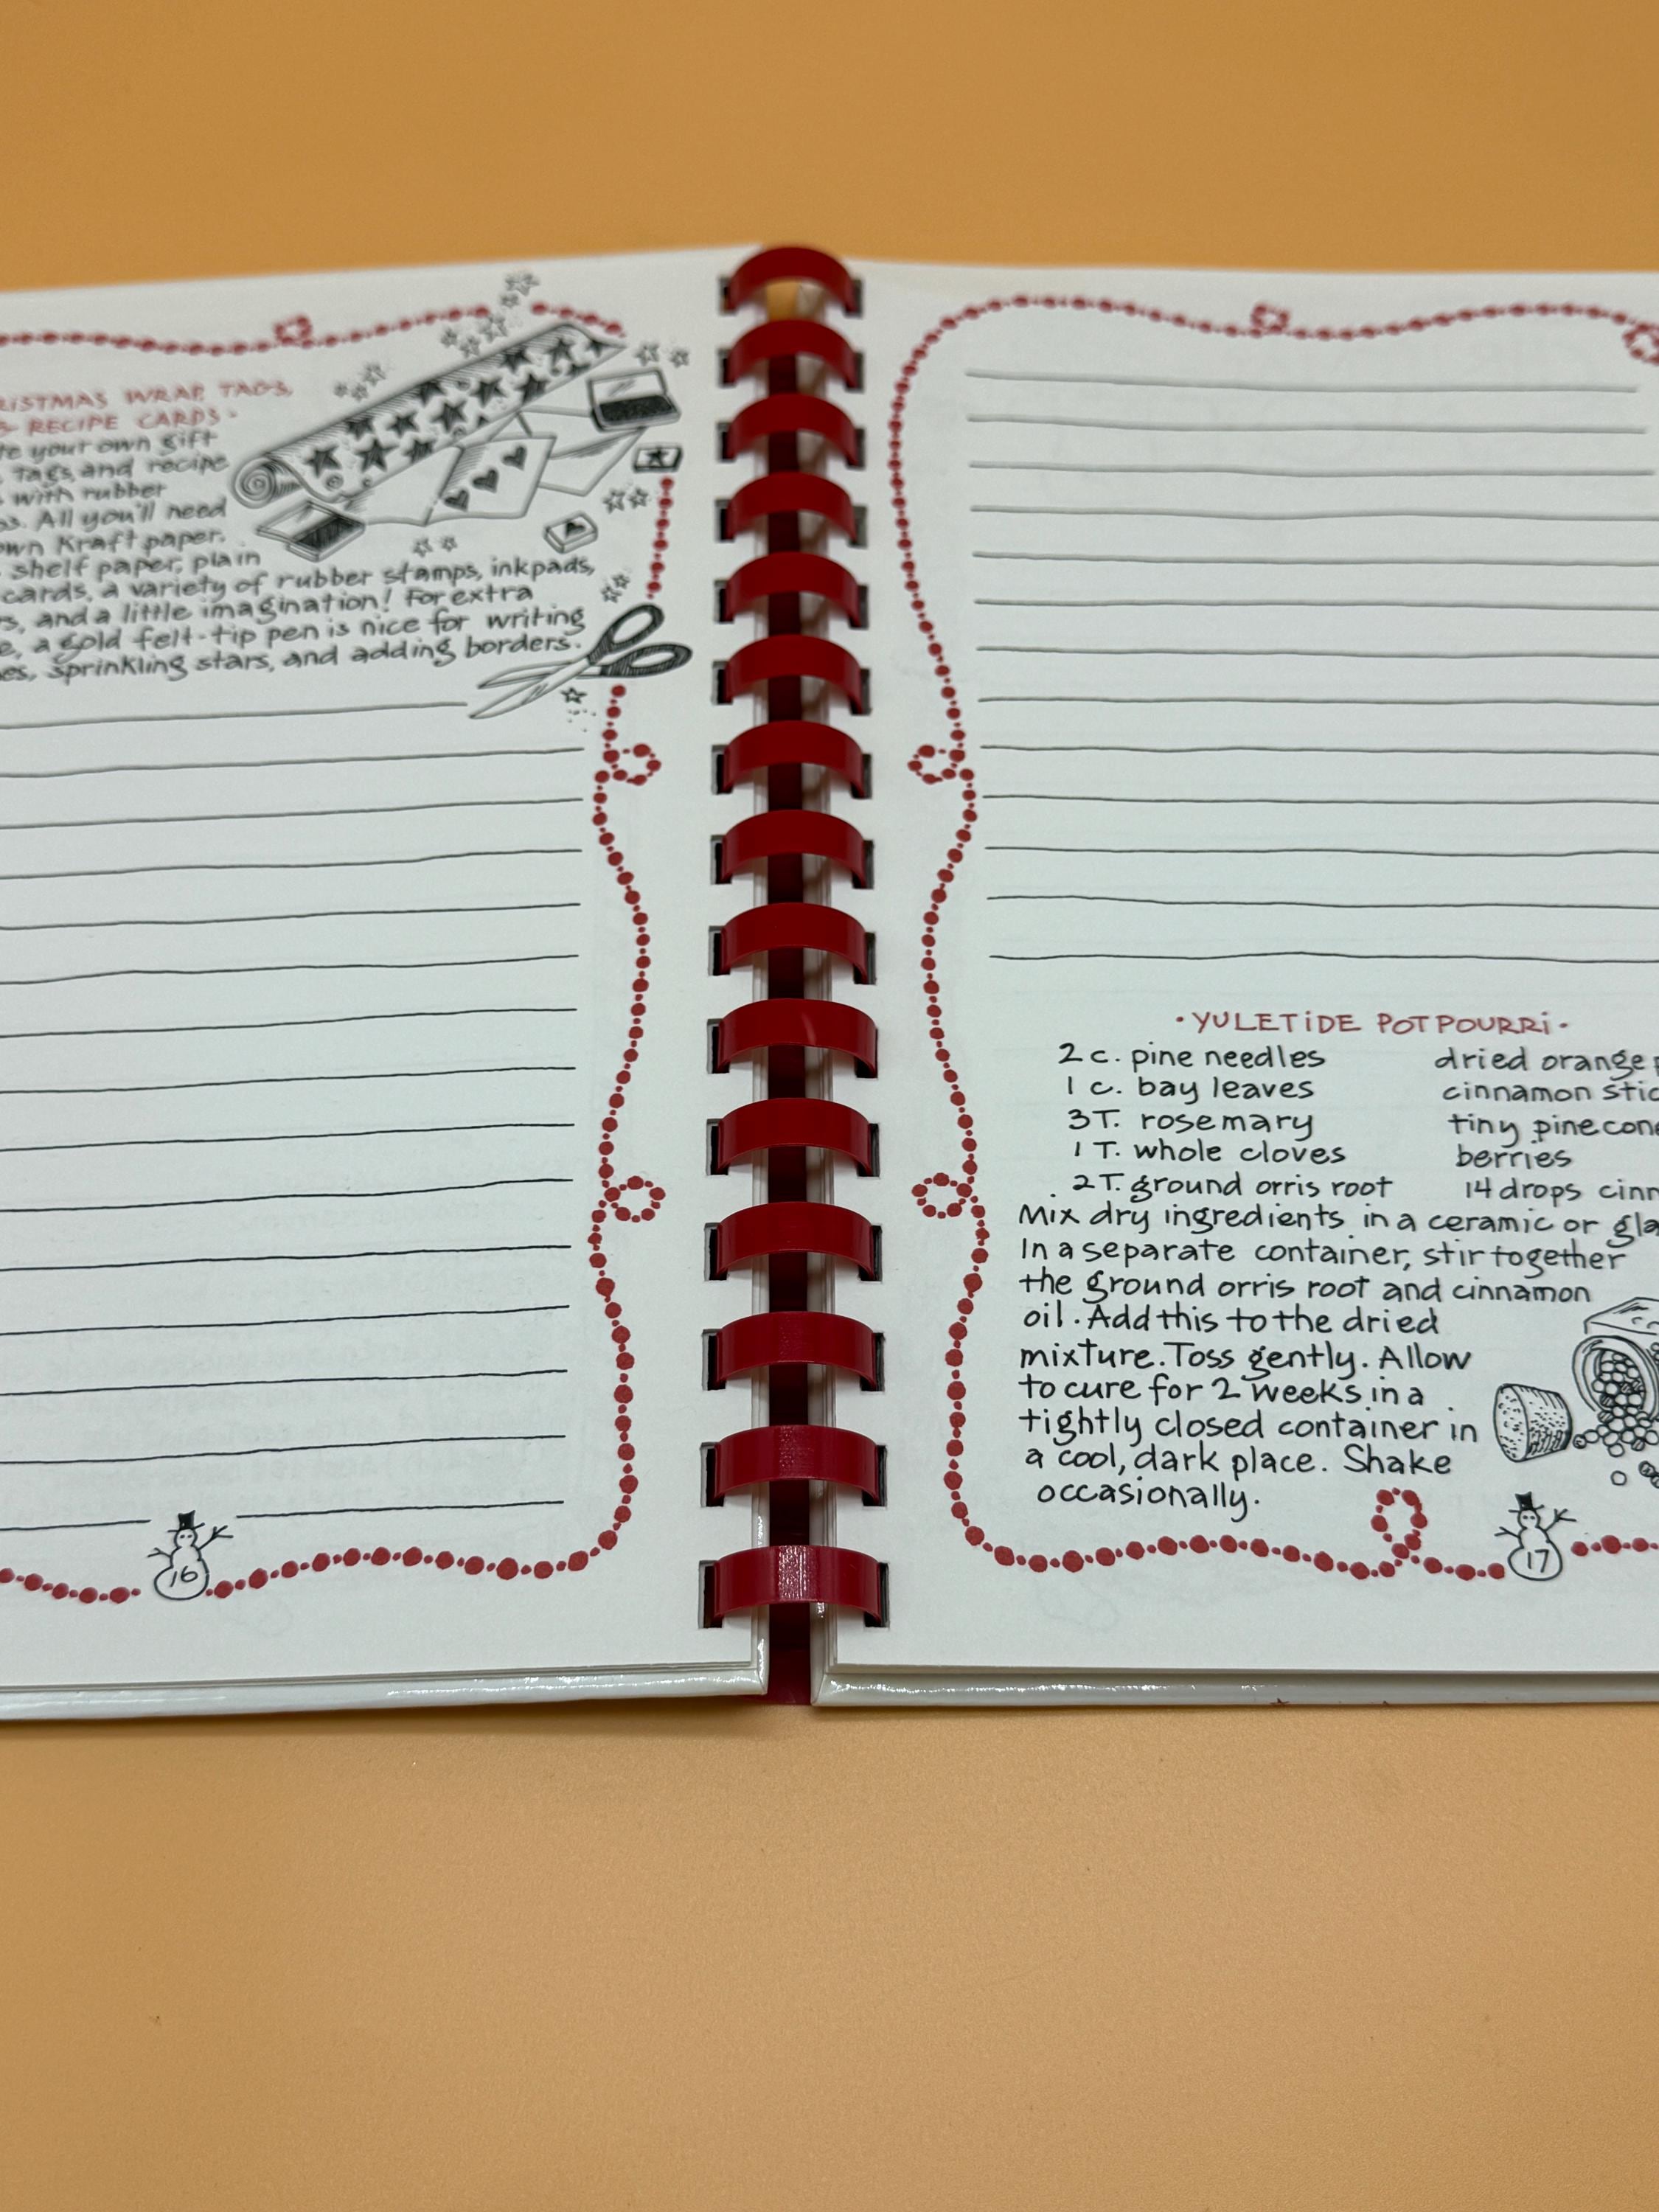 WRAP, TAGS,
& RECIPE CARDS·
your own gift
tags, and recipe
with rubber
All you'll need
Kraft paper,
shelf paper, plain
cards, a variety of rubber stamps, inkpads,
and a little imagination! For extra
a gold felt-tip pen is nice for writing
sprinkling stars, and adding borders.
16
·YULETIDE POTPOURRI·
2 c. pine needles
1 c. bay leaves
3 T. rosemary
1 T. whole cloves
2 T. ground orris root
dried orange
cinnamon
tiny
berries
14 drops
Mix dry ingredients in a ceramic or
In a separate container, stir together
the ground orris root and cinnamon
oil. Add this to the dried
mixture. Toss gently. Allow
to cure for 2 weeks in a
tightly closed container in
a cool, dark place. Shake
occasionally.
17